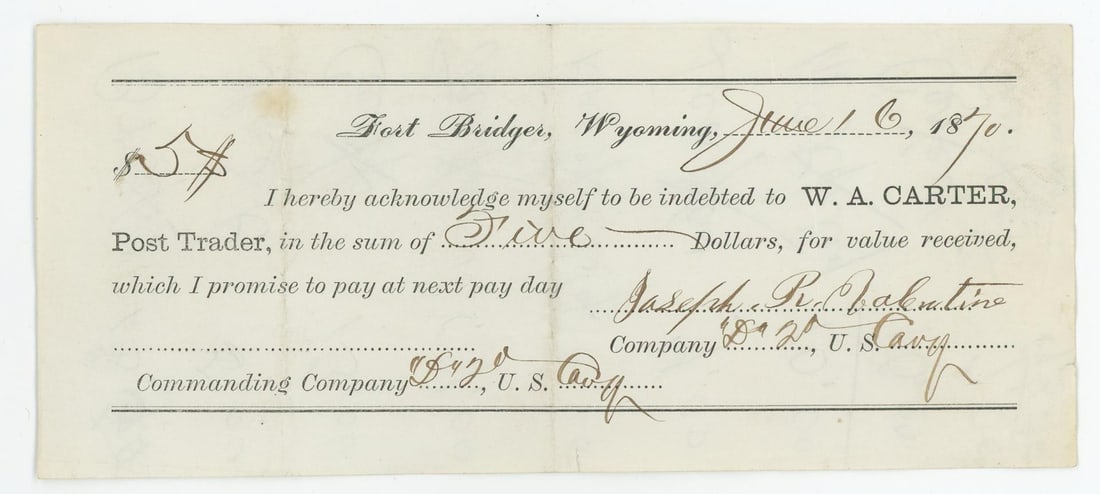 Fort Bridger, Wyoming, June 16, 1870.
$5$
I hereby acknowledge myself to be indebted to W. A. CARTER,
Post Trader, in the sum of Five Dollars, for value received,
which I promise to pay at next pay day
Joseph R. Valentine
Company "D" 2d, U. S. Cavy
Commanding Company "D" 2d, U. S. Cavy